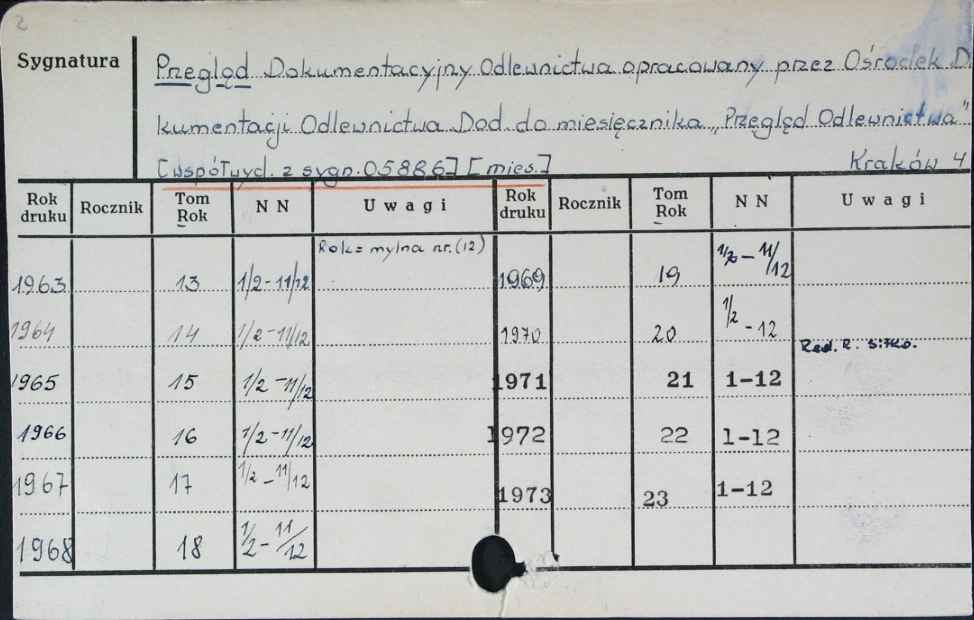 2
Sygnatura
Przegląd Dokumentacyjny Odlewnictwa opracowany przez Ośrodek D
kumentacji Odlewnictwa Dod. do miesięcznika „Przegląd Odlewnictwa"
[współwyd. z sygn. 058867] [mies.] Kraków 4
Rok druku Rocznik Tom Rok N N Uwagi Rok druku Rocznik Tom Rok N N Uwagi
1963 13 1/2-11/12 Rok= mylna nr. (12) 1969 19 1/2-11/12
1964 14 1/2-11/12 1970 20 1/2-12
Red. R. Sitko.
1965 15 1/2-11/12 1971 21 1-12
1966 16 1/2-11/12 1972 22 1-12
1967 17 1/2-11/12 1973 23 1-12
1968 18 1/2-11/12